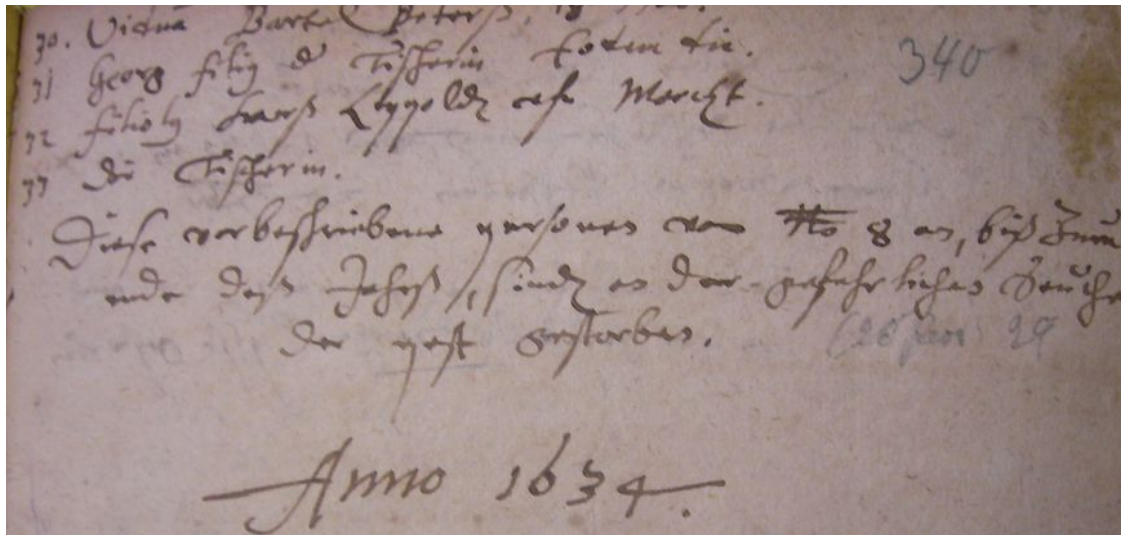 30. Vidua Bartel Peterß,
340
31 Georg filig d Tischerin eodem die.
32 filioly Lorß Lyppoldz
33 die Tischerin.
Diese vorbeschriebene personen von No 8 an, biß Zum
ende deß Jahrß, sindt an der gefehrlichen Seuche
der pest gestorben.
(26 29
Anno 1634.